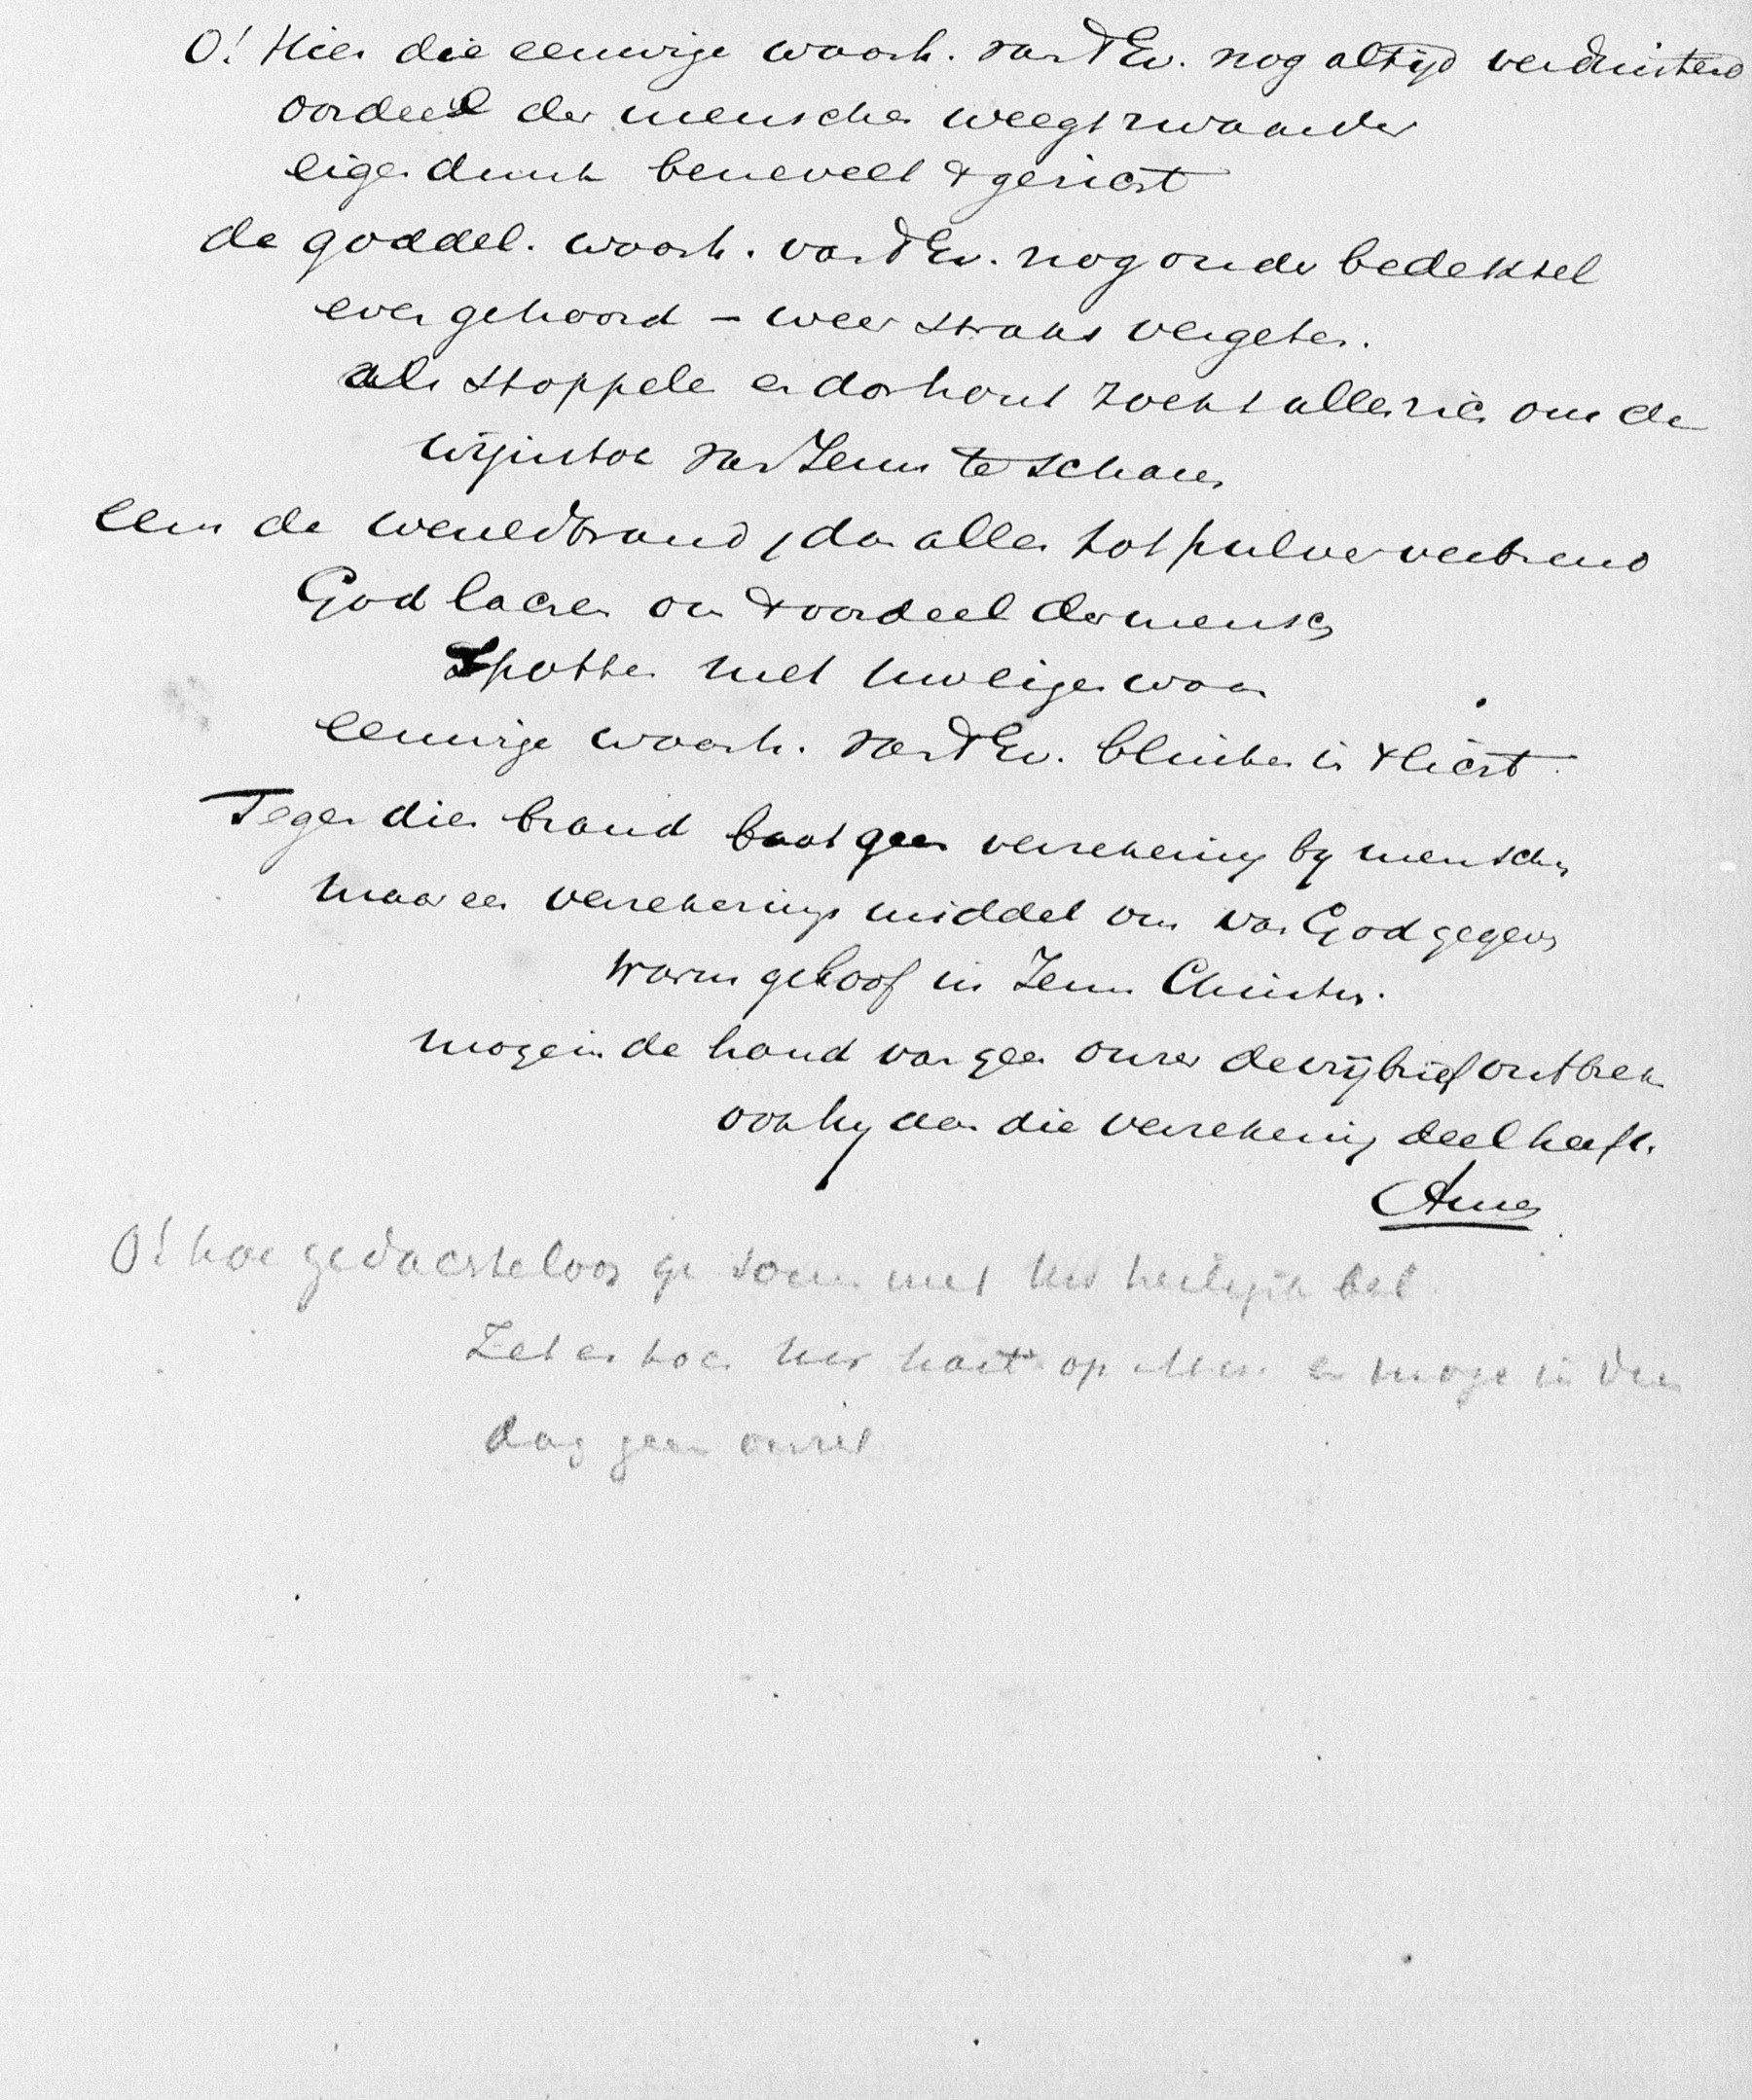 O! Hier die eeuwige waarh. van 't Ev. nog altijd verduisterd
oordeel der menschen weegt zwaarder
eigendunk benevelt 't gezicht
de goddel. waarh. van 't Ev. nog onder bedeksel
even gehoord – weer straks vergeten.
als stoppele en dorhout zoekt alles zich om de
wijnstok van Jezus te scharen
eens de wereldbrand, dan alles tot pulver verbrand
God lachen om 't oordeel der menschen
spotten met uw eigen waan
eeuwige waarh. van 't Ev. blinken in 't licht.
Tegen dien brand baat geen verzekering by menschen
maar een verzekeringsmiddel ons van God gegeven
warm geloof in Jezus Christus.
moge in de hand van geen onzer de vrijbrief ontbreken
ook hy aan die verzekering deel heeft.
Amen
O! hoe gedachteloos ge soms met uw
Zet en hoe uw hart op en moge in dien
dag geen onzer